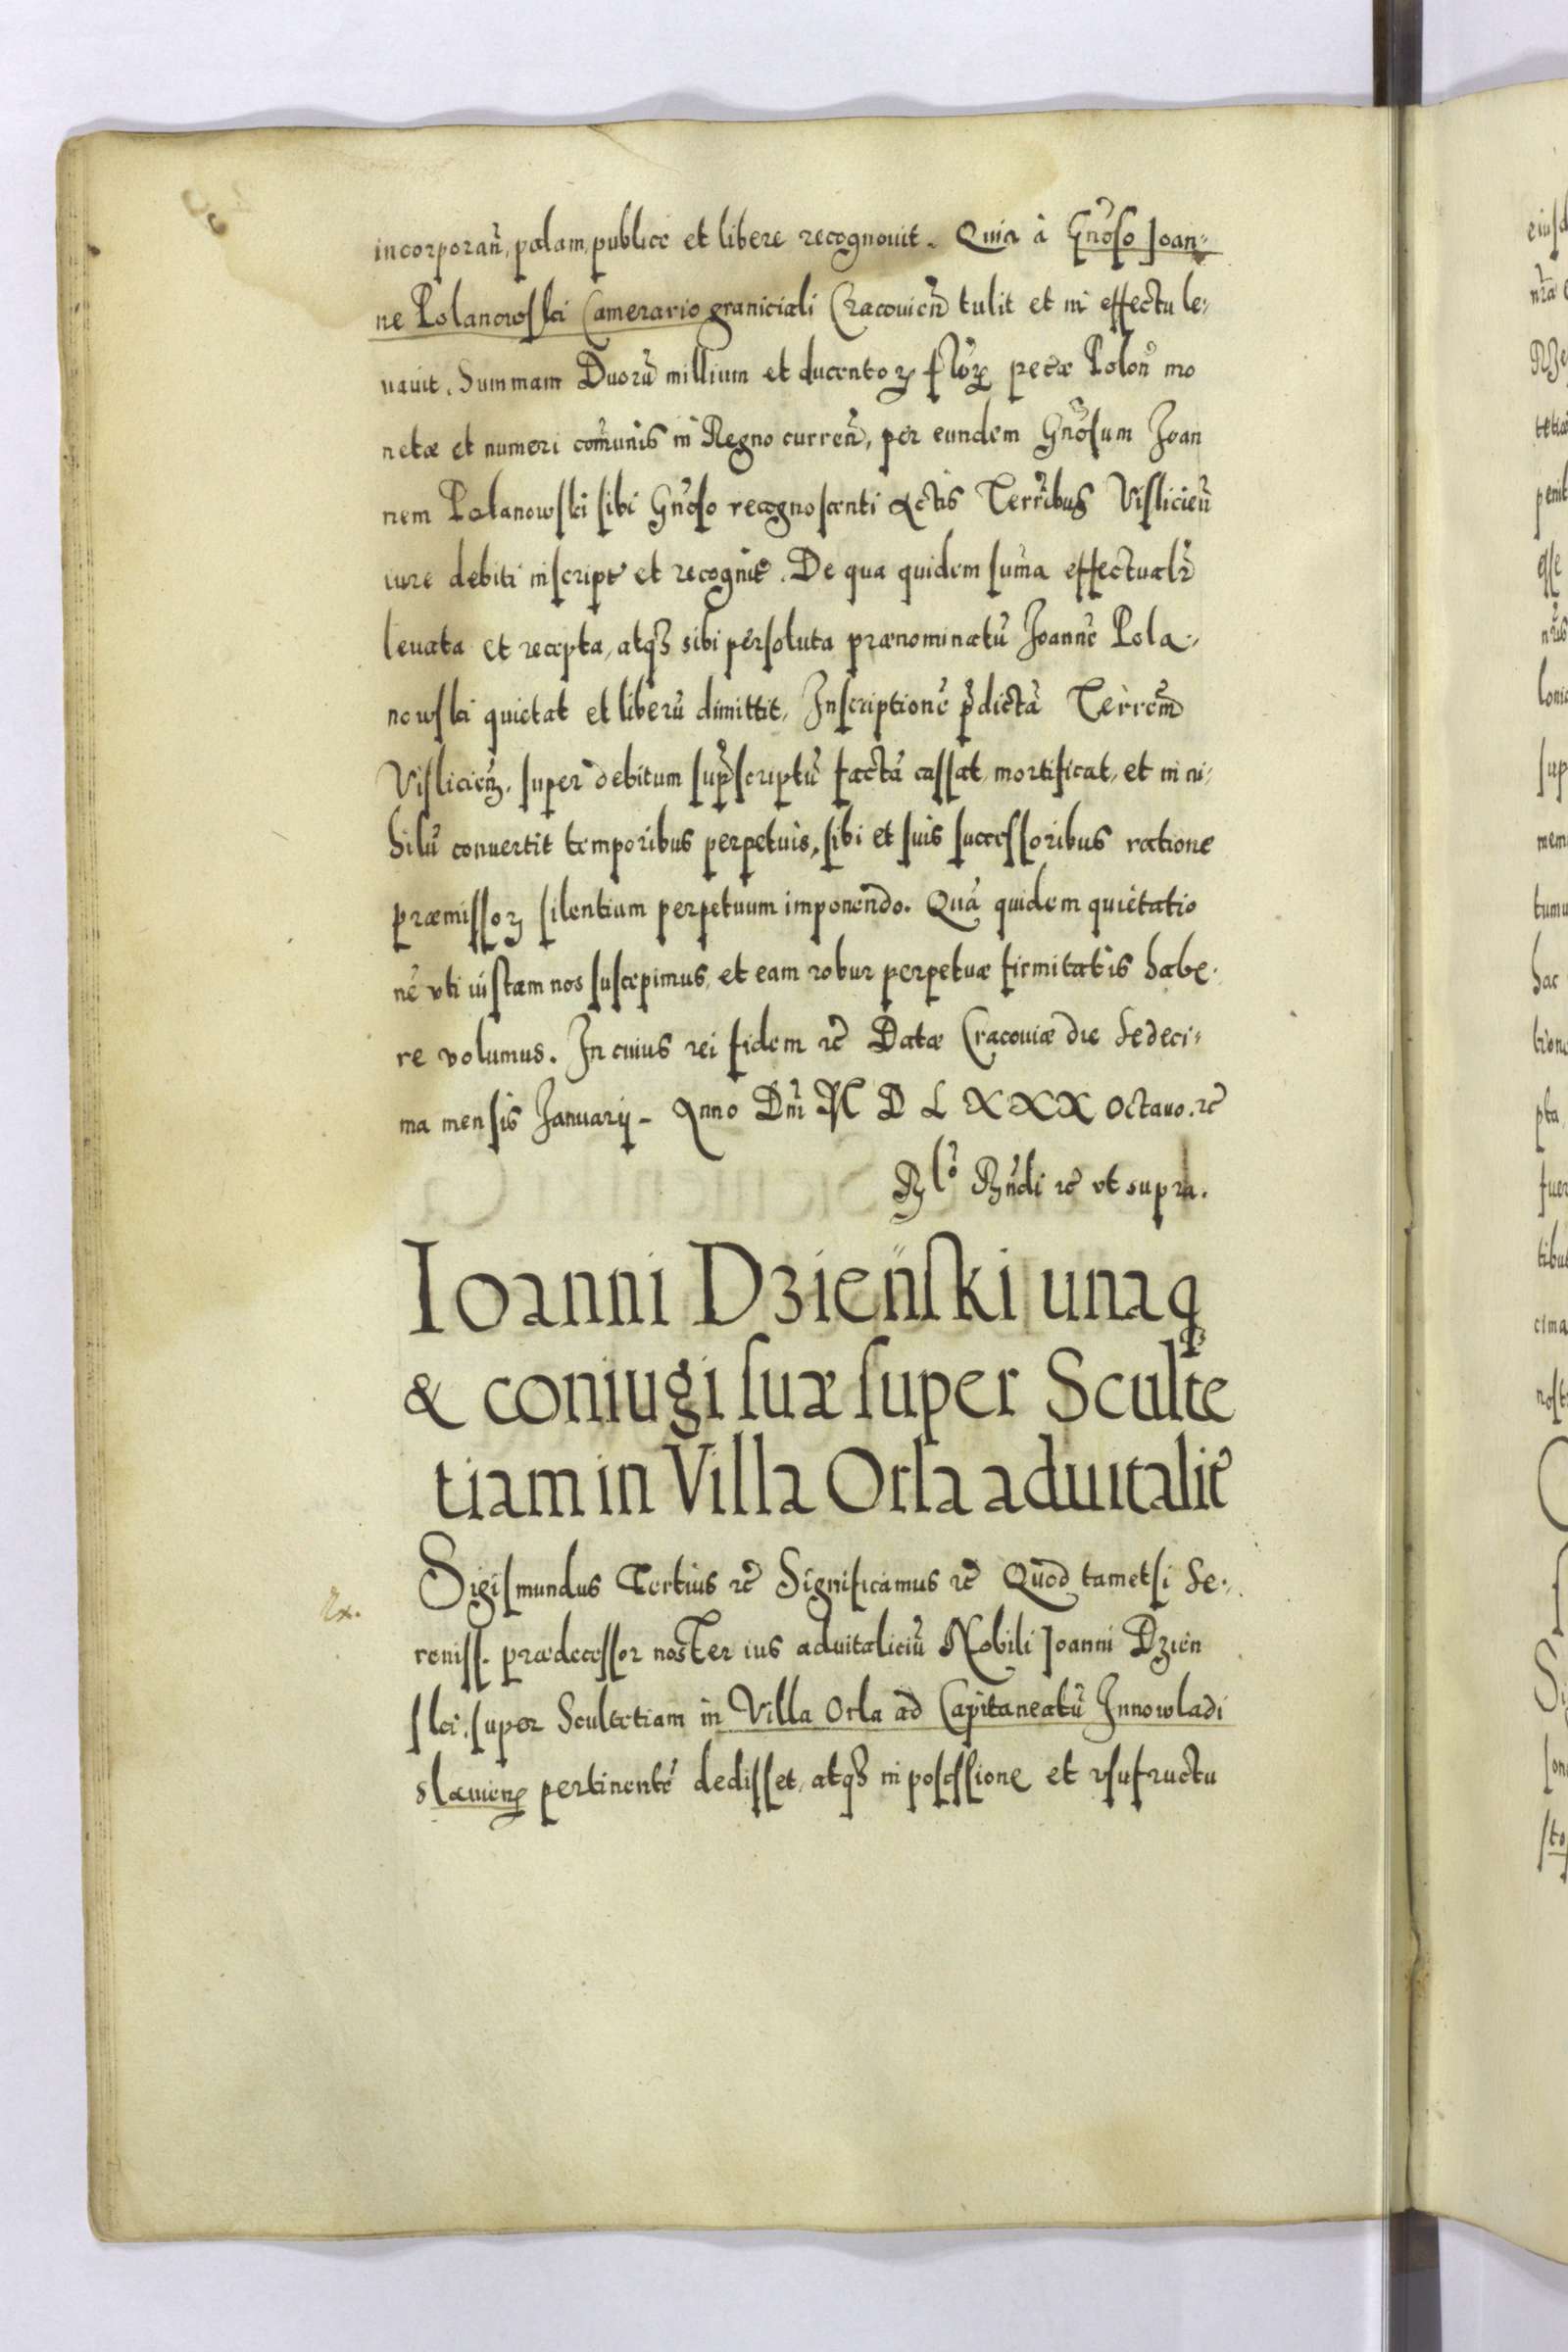 incorporan̄, palam, publice et libere recognouit. Quia à Gn̄oso Joan-
ne Polanowski Camerario graniciali Cracouien̄ tulit et in effectu le-
uauit. Summam Duorū millium et ducentoꝝ flōꝝ pecæ Polon̄ mo
netæ et numeri com̄unis in Regno curren̄, per eundem Gn̄osum Joan
nem Polanowski sibi Gn̄oso recognoscenti Actis Terr̄ibus Vislicien̄
iure debiti inscript̄ et recognit̄. De qua quidem sum̄a effectualr̄
leuata et recepta, atqꝫ sibi persoluta prænominatū Joannē Pola-
nowski quietat et liberū dimittit, Inscriptionē p̄dictā Terren̄
Vislicien̄, super debitum sup̄scriptū factā cassat, mortificat, et in ni-
hilū conuertit temporibus perpetuis, sibi et suis successoribus ratione
præmissoꝝ silentium perpetuum imponendo. Quā quidem quietatio
nē vti iustam nos suscepimus, et eam robur perpetuæ firmitatis habe-
re volumus. In cuius rei fidem ꝛc̄ Datæ Cracouiæ die Sedeci-
ma mensis Januarij - Anno Dn̄i M D L XXX octauo. ꝛc̄
R̄lo R̄ndi ꝛc̄ vt supra.
Ioanni Dzieńſki unaqꝫ
& coniugi ſuæ ſuper Sculte
tiam in Villa Orla aduitalit̄
Sigismundus Tertius ꝛc̄ Significamus ꝛc̄ Quod tametsi Se-
reniss. prædecessor noster ius aduitaliciū Nobili Joanni Dzien
ski, super Scultetiam in Villa Orla ad Capitaneatū Innowladi
slauien̄ pertinentē dedisset, atqꝫ in possessione et vsufructu